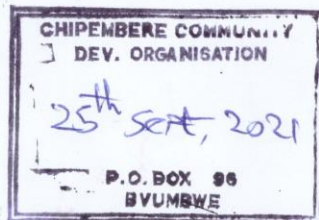 CHIPEMBERE COMMUNITY
DEV. ORGANISATION
25th Sept, 2021
P.O. BOX 96
BVUMBWE